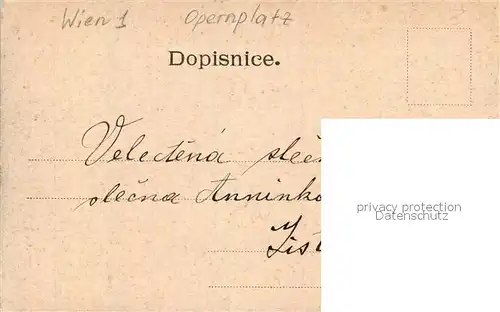 Wien 1 Opernplatz
Dopisnice.
Velectěná sleč
slečna Anninko
privacy protection
Datenschutz